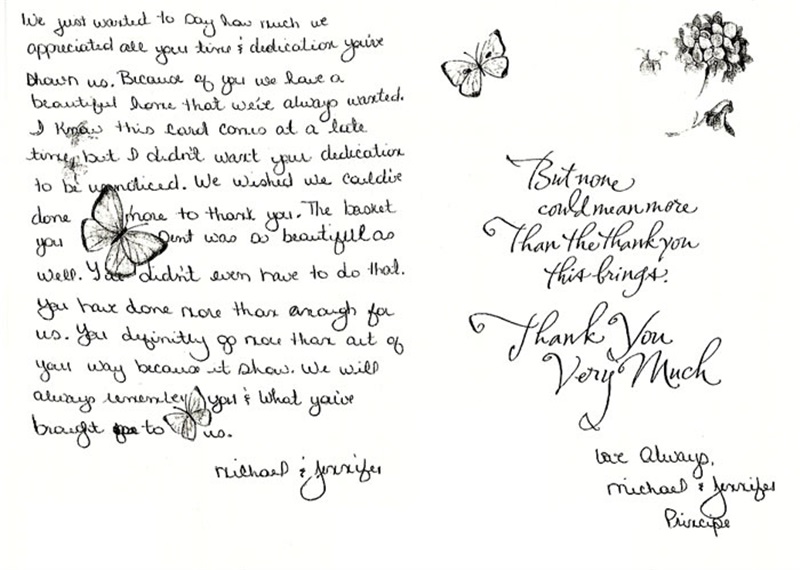 We just wanted to say how much we
appreciated all your time & dedication you've
shown us. Because of you we have a
beautiful home that we've always wanted.
I know this card comes at a late
time, but I didn't want your dedication
to be unnoticed. We wished we could've
done more to thank you. The basket
you sent was a beautiful as
well. You didn't even have to do that.
You have done more than enough for
us. You definitly go more than out of
your way because it show. We will
always remember you & what you've
brought to us.
Michael & Jennifer
But none
could mean more
Than the thank you
this brings.
Thank You
Very Much
Love Always,
Michael & Jennifer
Principe